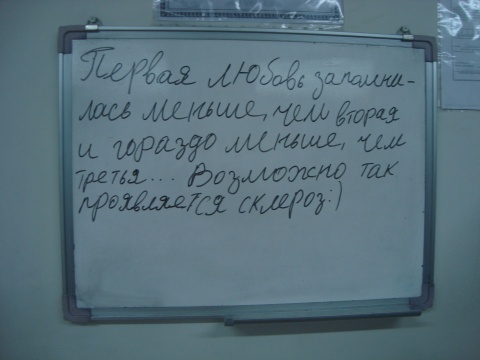 Первая любовь запомни-
лась меньше, чем вторая
и гораздо меньше, чем
третья... Возможно так
проявляется склероз:)